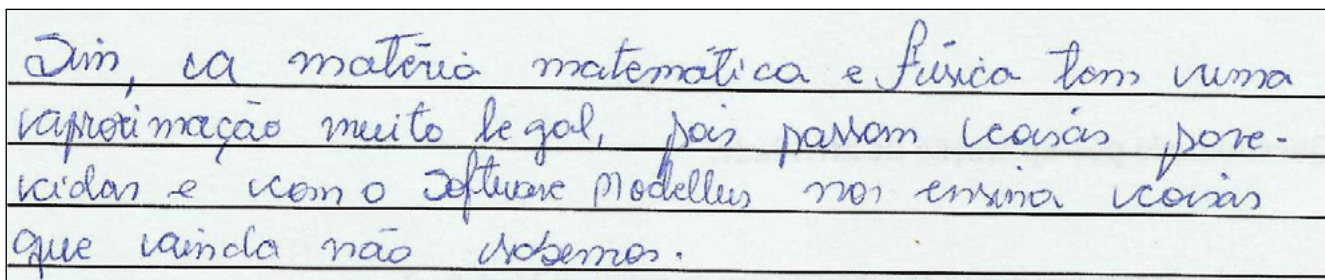 Sim, a matéria matemática e física tem uma
aproximação muito legal, pois passam coisas pare-
cidas e com o Software Modellus nos ensina coisas
que ainda não sabemos.